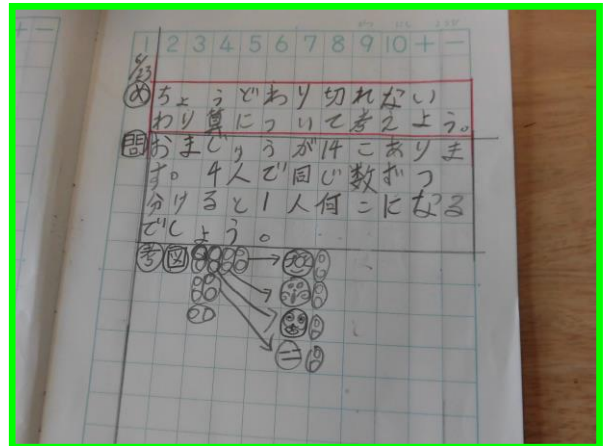 1 2 3 4 5 6 7 8 9 10 + -
6/23
め ちょうどわり切れない
わり算について考えよう。
問 おまじゅうが14こありま
す。4人で同じ数ずつ
分けると1人何こになる
でしょう。
考 図